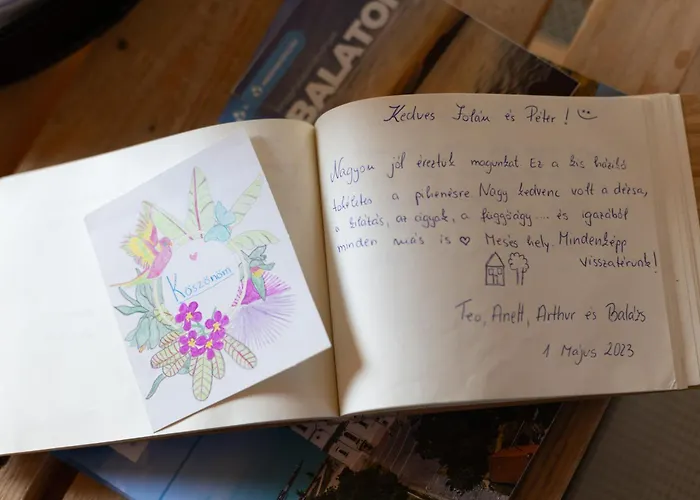 BALATON
Kedves Jolán és Péter! :)
Nagyon jól éreztük magunkat. Ez a kis házikó
tökéletes a pihenésre. Nagy kedvenc volt a dézsa,
a kilátás, az ágyak, a függőágy... és igazából
minden más is ♥ Mesés hely. Mindenképp
visszatérünk!
Teo, Anett, Arthur és Balázs
1 Május 2023
Köszönöm